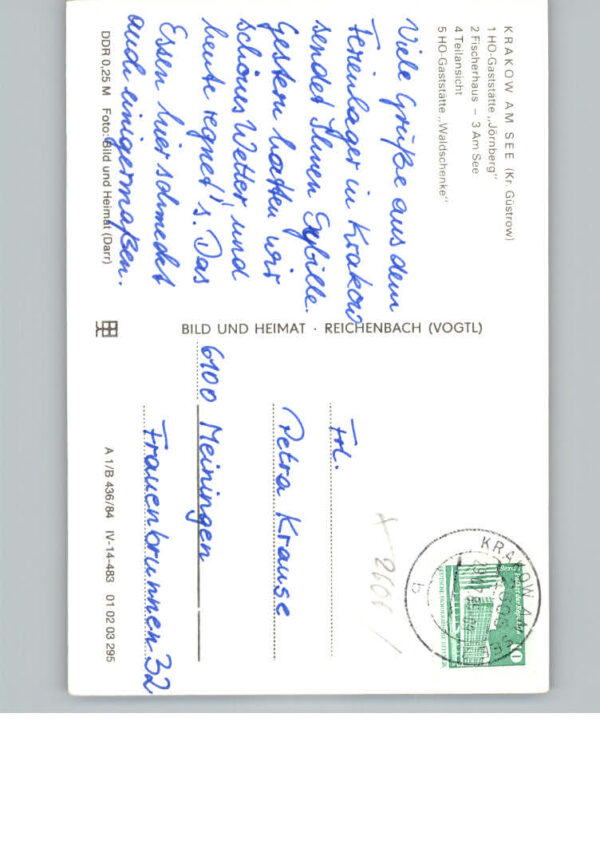 KRAKOW AM SEE (Kr. Güstrow)
1 HO-Gaststätte „Jörnberg"
2 Fischerhaus – 3 Am See
4 Teilansicht
5 HO-Gaststätte „Waldschenke"
Viele Grüße aus dem
Ferienlager in Krakow
sendet Ihnen Sybille.
Gestern hatten wir
schönes Wetter, und
heute regnet's. Das
Essen hier schmeckt
auch einigermaßen.
DDR 0,25 M Foto: Bild und Heimat (Darr)
BILD UND HEIMAT · REICHENBACH (VOGTL)
Frl.
Petra Krause
6100 Meiningen
Frauenbrunnen 32
A 1/B 436/84 IV-14-483 01 02 03 295
KRAKOW AM SEE
b
10